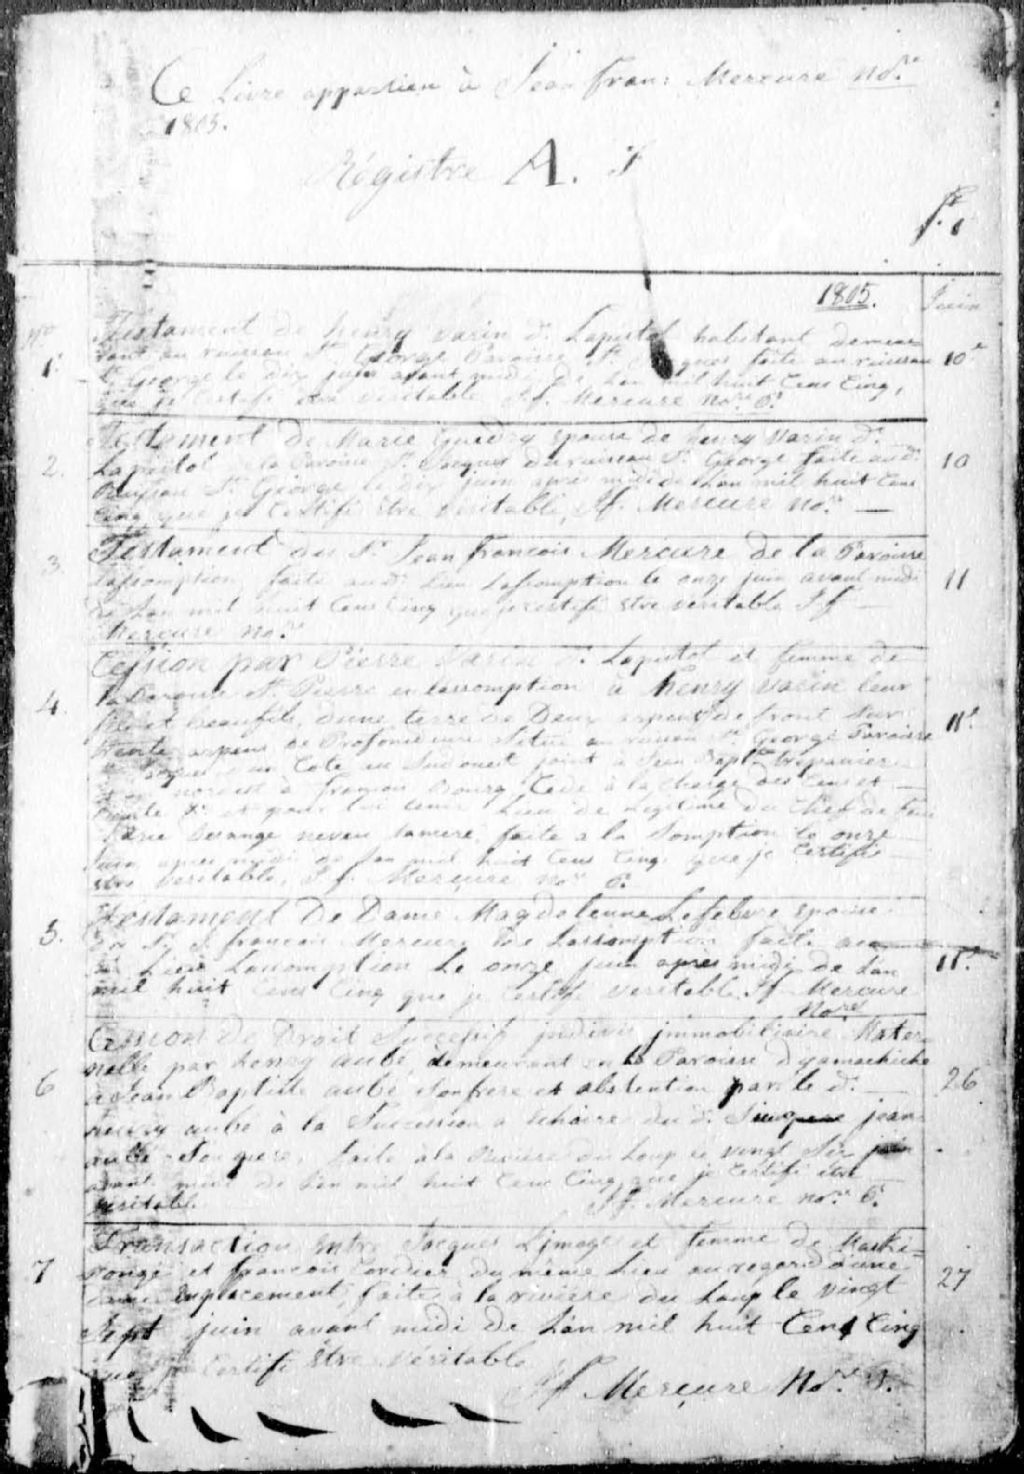 Ce Livre appartien à Jean Frans Mercure Nore
1805.
Régistre A.
1805. Juin
No
1. Testament de henry Varin dt Lapistol habitant demeu
rant au ruisseau St George Paroisse St faite au ruisseau 10e
St George le dix juin avant midi de Lan mil huit Cens Cinq,
que je Certifi être veritable Jf. Mercure Nore
Testement de Marie Guedry epouse de henry Varin dt
2. Lapistol de la Paroisse St Jacques du ruisseau St George faite audt 10
Ruisseau St George le dix juin apres midi de Lan mil huit Cens
Cinq que je Certifi être veritable, Jf. Mercure Nore
3. Testament du Sr Jean francois Mercure de la Paroisse
Lassomption, faite audt Lieu Lassomption le onze juin avant midi 11
de Lan mil huit Cens Cinq que je certifi être veritable Jf
Mercure Nore
Cession par Pierre Varin dt Lapistol et femme de
4. la Paroisse St Pierre en Lassomption à henry Varin leur
fils et beaufils, dune terre de Deux arpent de front sur 11e
trente arpens de Profondeur Situé au ruisseau St George Paroisse
un Coté au Sudouest joint à Jean Bapte
nordest à françois Bourg, Cede à la charge des Cens et
rente et pour lui tenir Lieu de Legitime du Chef de feue
Marie sa mere, faite a la Somption le onze
Juin apres midi de Lan mil huit Cens Cinq que je Certifi
être veritable, Jf. Mercure Nore
Testament de Dame Magdeleunne Lefebvre epouse
5. du Sr J. francois Mercure de Lassomption faite au
dt Lieu Lassomption le onze juin apres midi de Lan 11e
mil huit Cens Cinq que je Certifi veritable Jf Mercure
Nore
Cession de Droit Successif indivis immobiliaire Mater
nelle par henry aubé demeurant en la Paroisse Dyamachiche
6 à Jean Baptiste aubé Son frere et abstention par le dt 26
henry aubé à la Succession a Echoire du dt jean
aubé Son pere, faite à la Riviere du Loup le vingt Six juin
avant midi de Lan mil huit Cens Cinq que je Certifi être
veritable Jf. Mercure Nore
Transaction entre Jacques Limoges et femme de Maski=
7 nongé et francois du même Lieu au regard d'une 27
emplacement, faite à la riviere du Loup le vingt
Sept juin avant midi de Lan mil huit Cens Cinq
que je Certifi être Véritable
Jf Mercure Nore